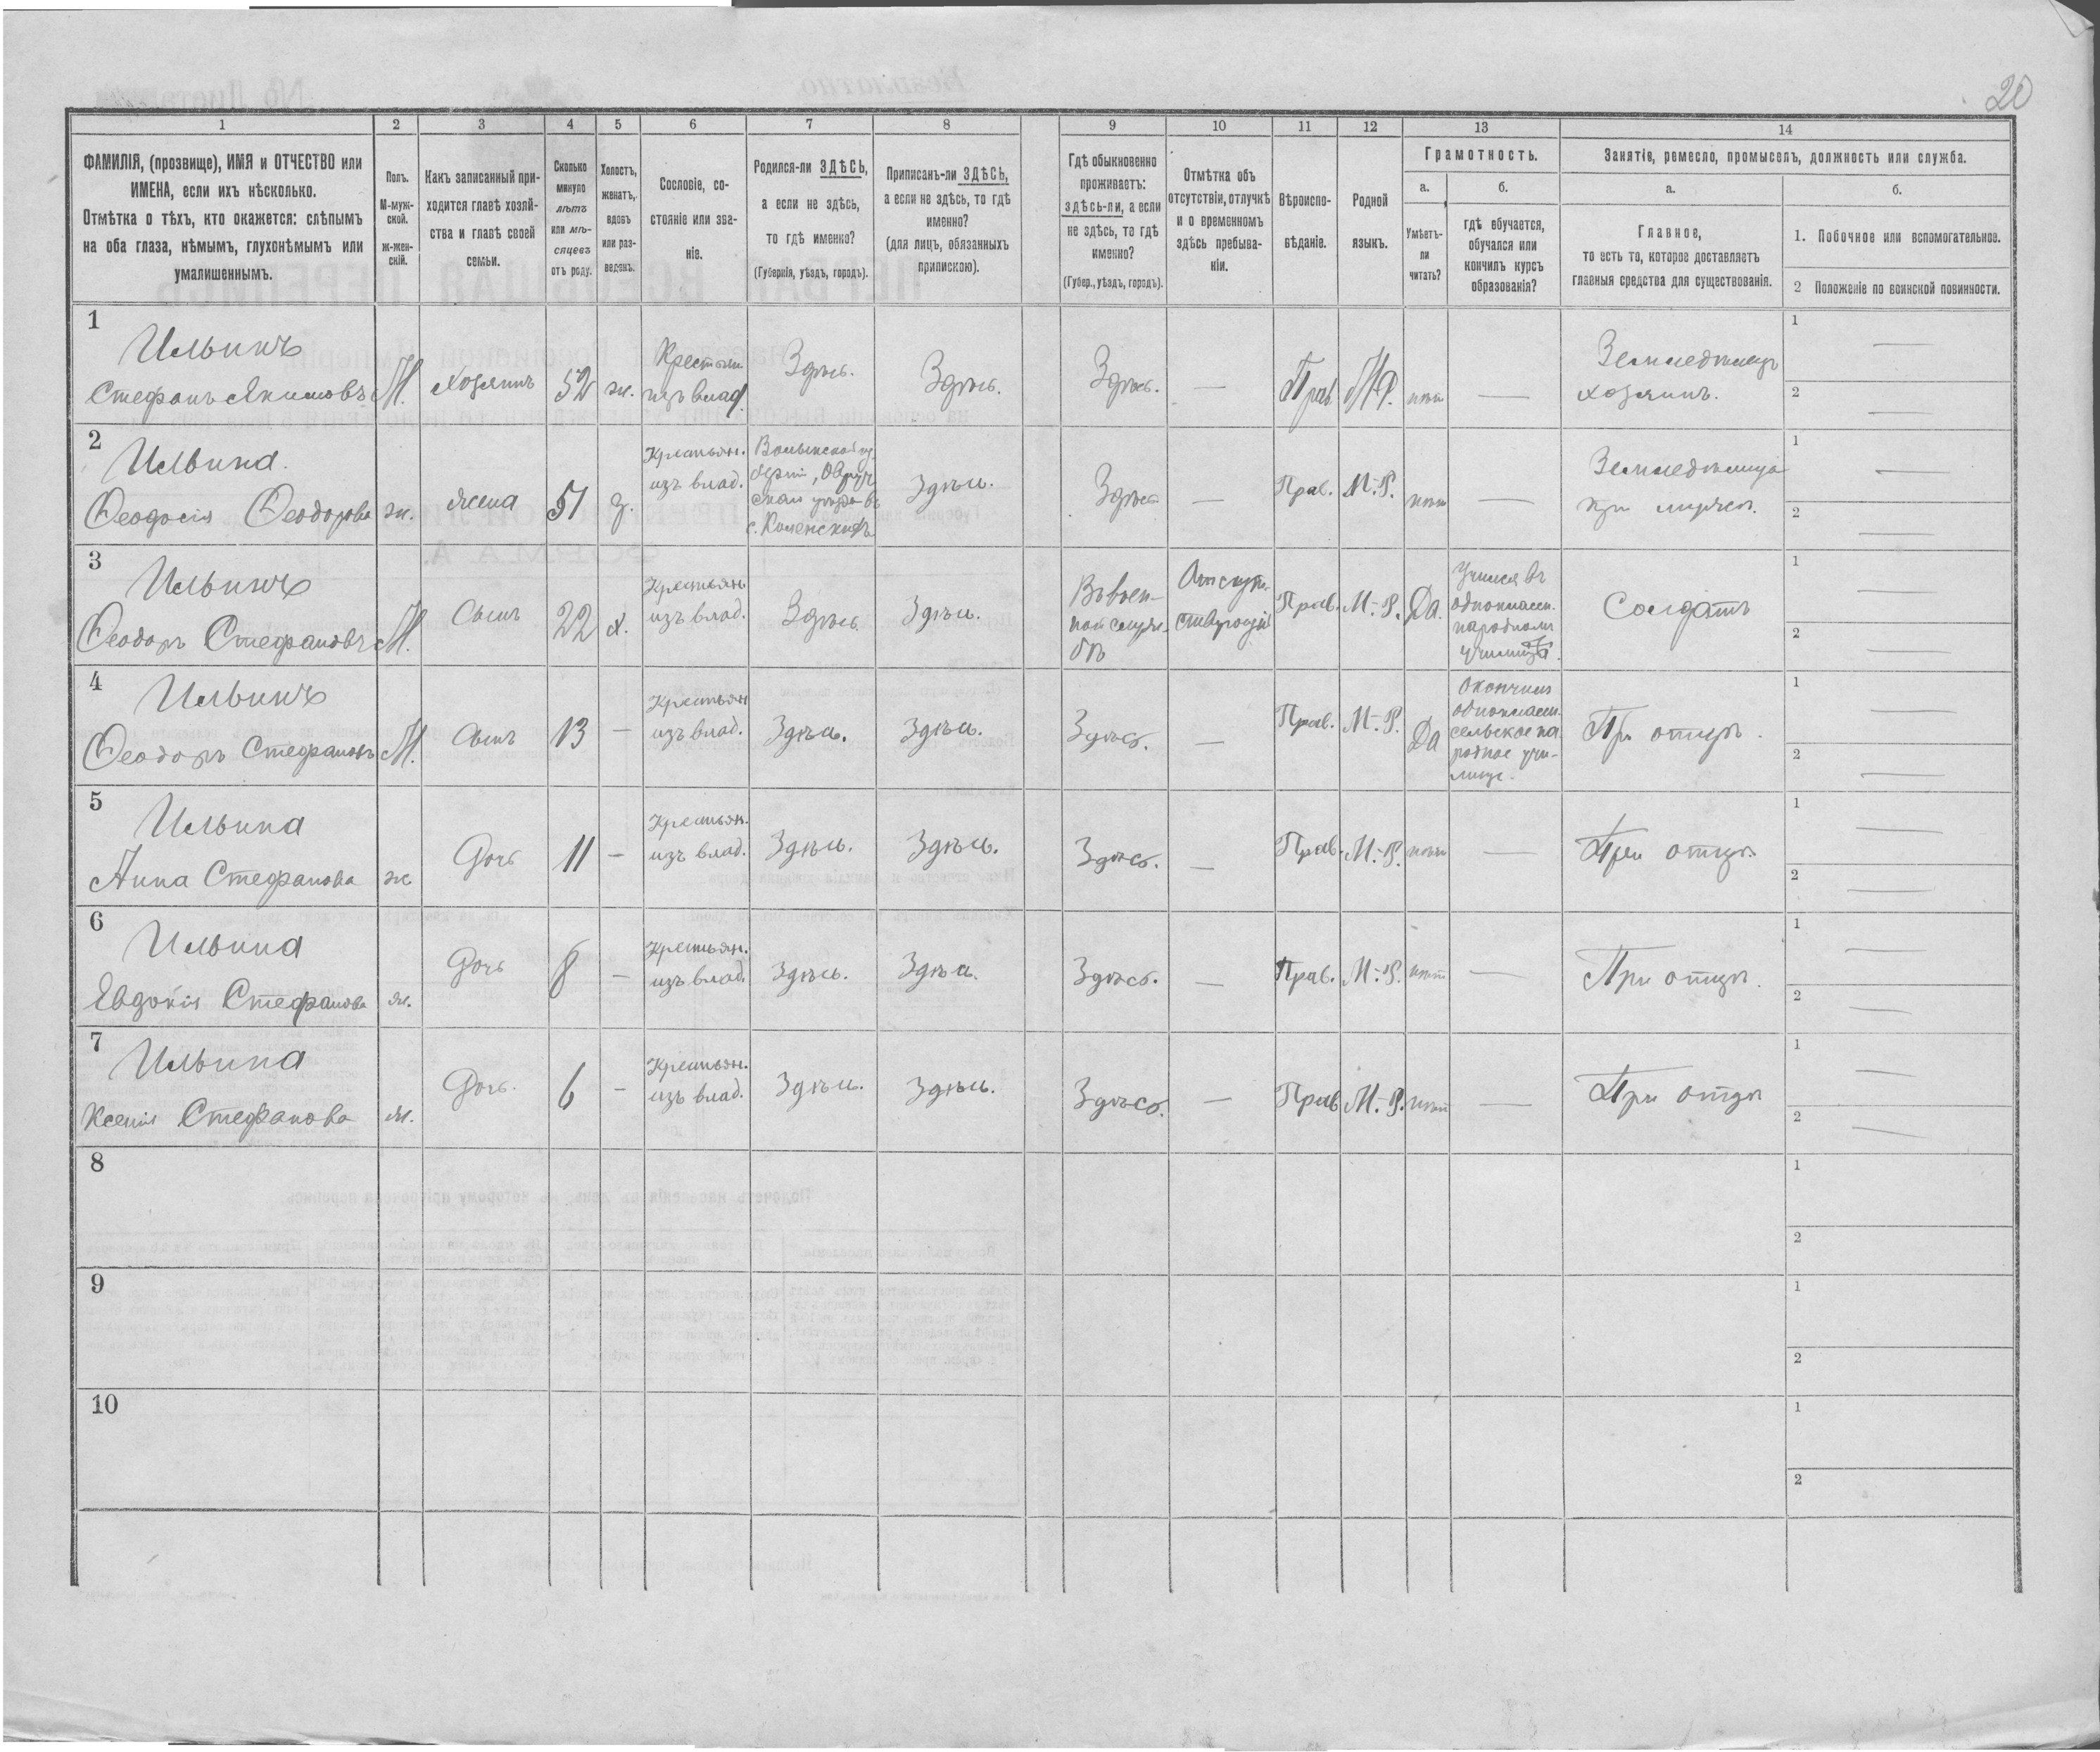 20
1 2 3 4 5 6 7 8 9 10 11 12 13 14
ФАМИЛІЯ, (прозвище), ИМЯ и ОТЧЕСТВО или
ИМЕНА, если ихъ нѣсколько.
Отмѣтка о тѣхъ, кто окажется: слѣпымъ
на оба глаза, нѣмымъ, глухонѣмымъ или
умалишеннымъ.
Полъ.
М-муж-
ской.
ж-жен-
скій.
Какъ записанный при-
ходится главѣ хозяй-
ства и главѣ своей
семьи.
Сколько
минуло
лѣтъ
или мѣ-
сяцевъ
отъ роду.
Холостъ,
женатъ,
вдовъ
или раз-
веденъ.
Сословіе, со-
стояніе или зва-
ніе.
Родился-ли ЗДѢСЬ,
а если не здѣсь,
то гдѣ именно?
(Губернія, уѣздъ, городъ).
Приписанъ-ли ЗДѢСЬ,
а если не здѣсь, то гдѣ
именно?
(для лицъ, обязанныхъ
припискою).
Гдѣ обыкновенно
проживаетъ:
здѣсь-ли, а если
не здѣсь, то гдѣ
именно?
(Губер., уѣздъ, городъ).
Отмѣтка объ
отсутствіи, отлучкѣ
и о временномъ
здѣсь пребыва-
ніи.
Вѣроиспо-
вѣданіе.
Родной
языкъ.
Грамотность.
а.
Умѣетъ-
ли
читать?
б.
гдѣ обучается,
обучался или
кончилъ курсъ
образованія?
Занятіе, ремесло, промыселъ, должность или служба.
а.
Главное,
то есть то, которое доставляетъ
главныя средства для существованія.
б.
1. Побочное или вспомогательное.
2 Положеніе по воинской повинности.
1
Ильинъ
Стефанъ Якимовъ
М.
Хозяинъ
52
ж.
Крестьян.
изъ влад.
Здѣсь.
Здѣсь.
Здѣсь.
—
Прав.
М.Р.
нѣтъ
—
Земледѣлецъ
хозяинъ.
1 —
2 —
2
Ильина.
Ѳеодосія Ѳеодорова
ж.
жена
51
з.
Крестьян.
изъ влад.
Волынской гу
берніи, Овруч
скаго уѣзда въ
Здѣсь.
Здѣсь
—
Прав.
М.-Р.
нѣтъ
—
Земледѣлица
при мужѣ.
1 —
2 —
3
Ильинъ
Ѳеодоръ Стефановъ
М.
Сынъ
22
х.
Крестьян
изъ влад.
Здѣсь
Здѣсь.
Въ воен-
ной служ-
бѣ
Отсут-
ствующій
Прав.
М.-Р.
Да.
Учился въ
однокласн.
народномъ
училищѣ.
Солдатъ
1 —
2 —
4
Ильинъ
Ѳеодоръ Стефановъ
М.
Сынъ
13
—
Крестьян
изъ влад.
Здѣсь.
Здѣсь.
Здѣсь.
—
Прав.
М.-Р.
Да
Окончилъ
однокласн.
сельское на
родное учи-
лище.
При отцѣ.
1 —
2 —
5
Ильина
Анна Стефанова
ж
Дочь
11
—
Крестьян.
изъ влад.
Здѣсь.
Здѣсь.
Здѣсь.
—
Прав.
М.-Р.
нѣтъ
—
При отцѣ.
1 —
2 —
6
Ильина
Евдокія Стефанова
ж.
Дочь
8
—
Крестьян.
изъ влад.
Здѣсь.
Здѣсь.
Здѣсь.
—
Прав.
М.-Р.
нѣтъ
—
При отцѣ.
1 —
2 —
7
Ильина
Ксенія Стефанова
ж.
Дочь.
6
—
Крестьян.
изъ влад.
Здѣсь.
Здѣсь.
Здѣсь.
—
Прав
М.-Р.
нѣтъ
—
При отцѣ
1 —
2 —
8
1
2
9
1
2
10
1
2